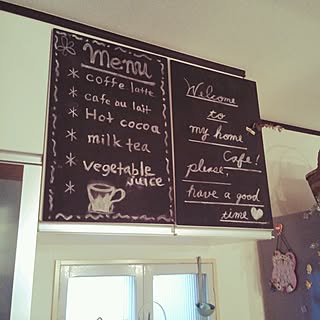 Menu
* coffe latte
* cafe au lait
* Hot cocoa
* milk tea
* vegetable
juice
Welcome
to
my home
Cafe!
please,
have a good
time